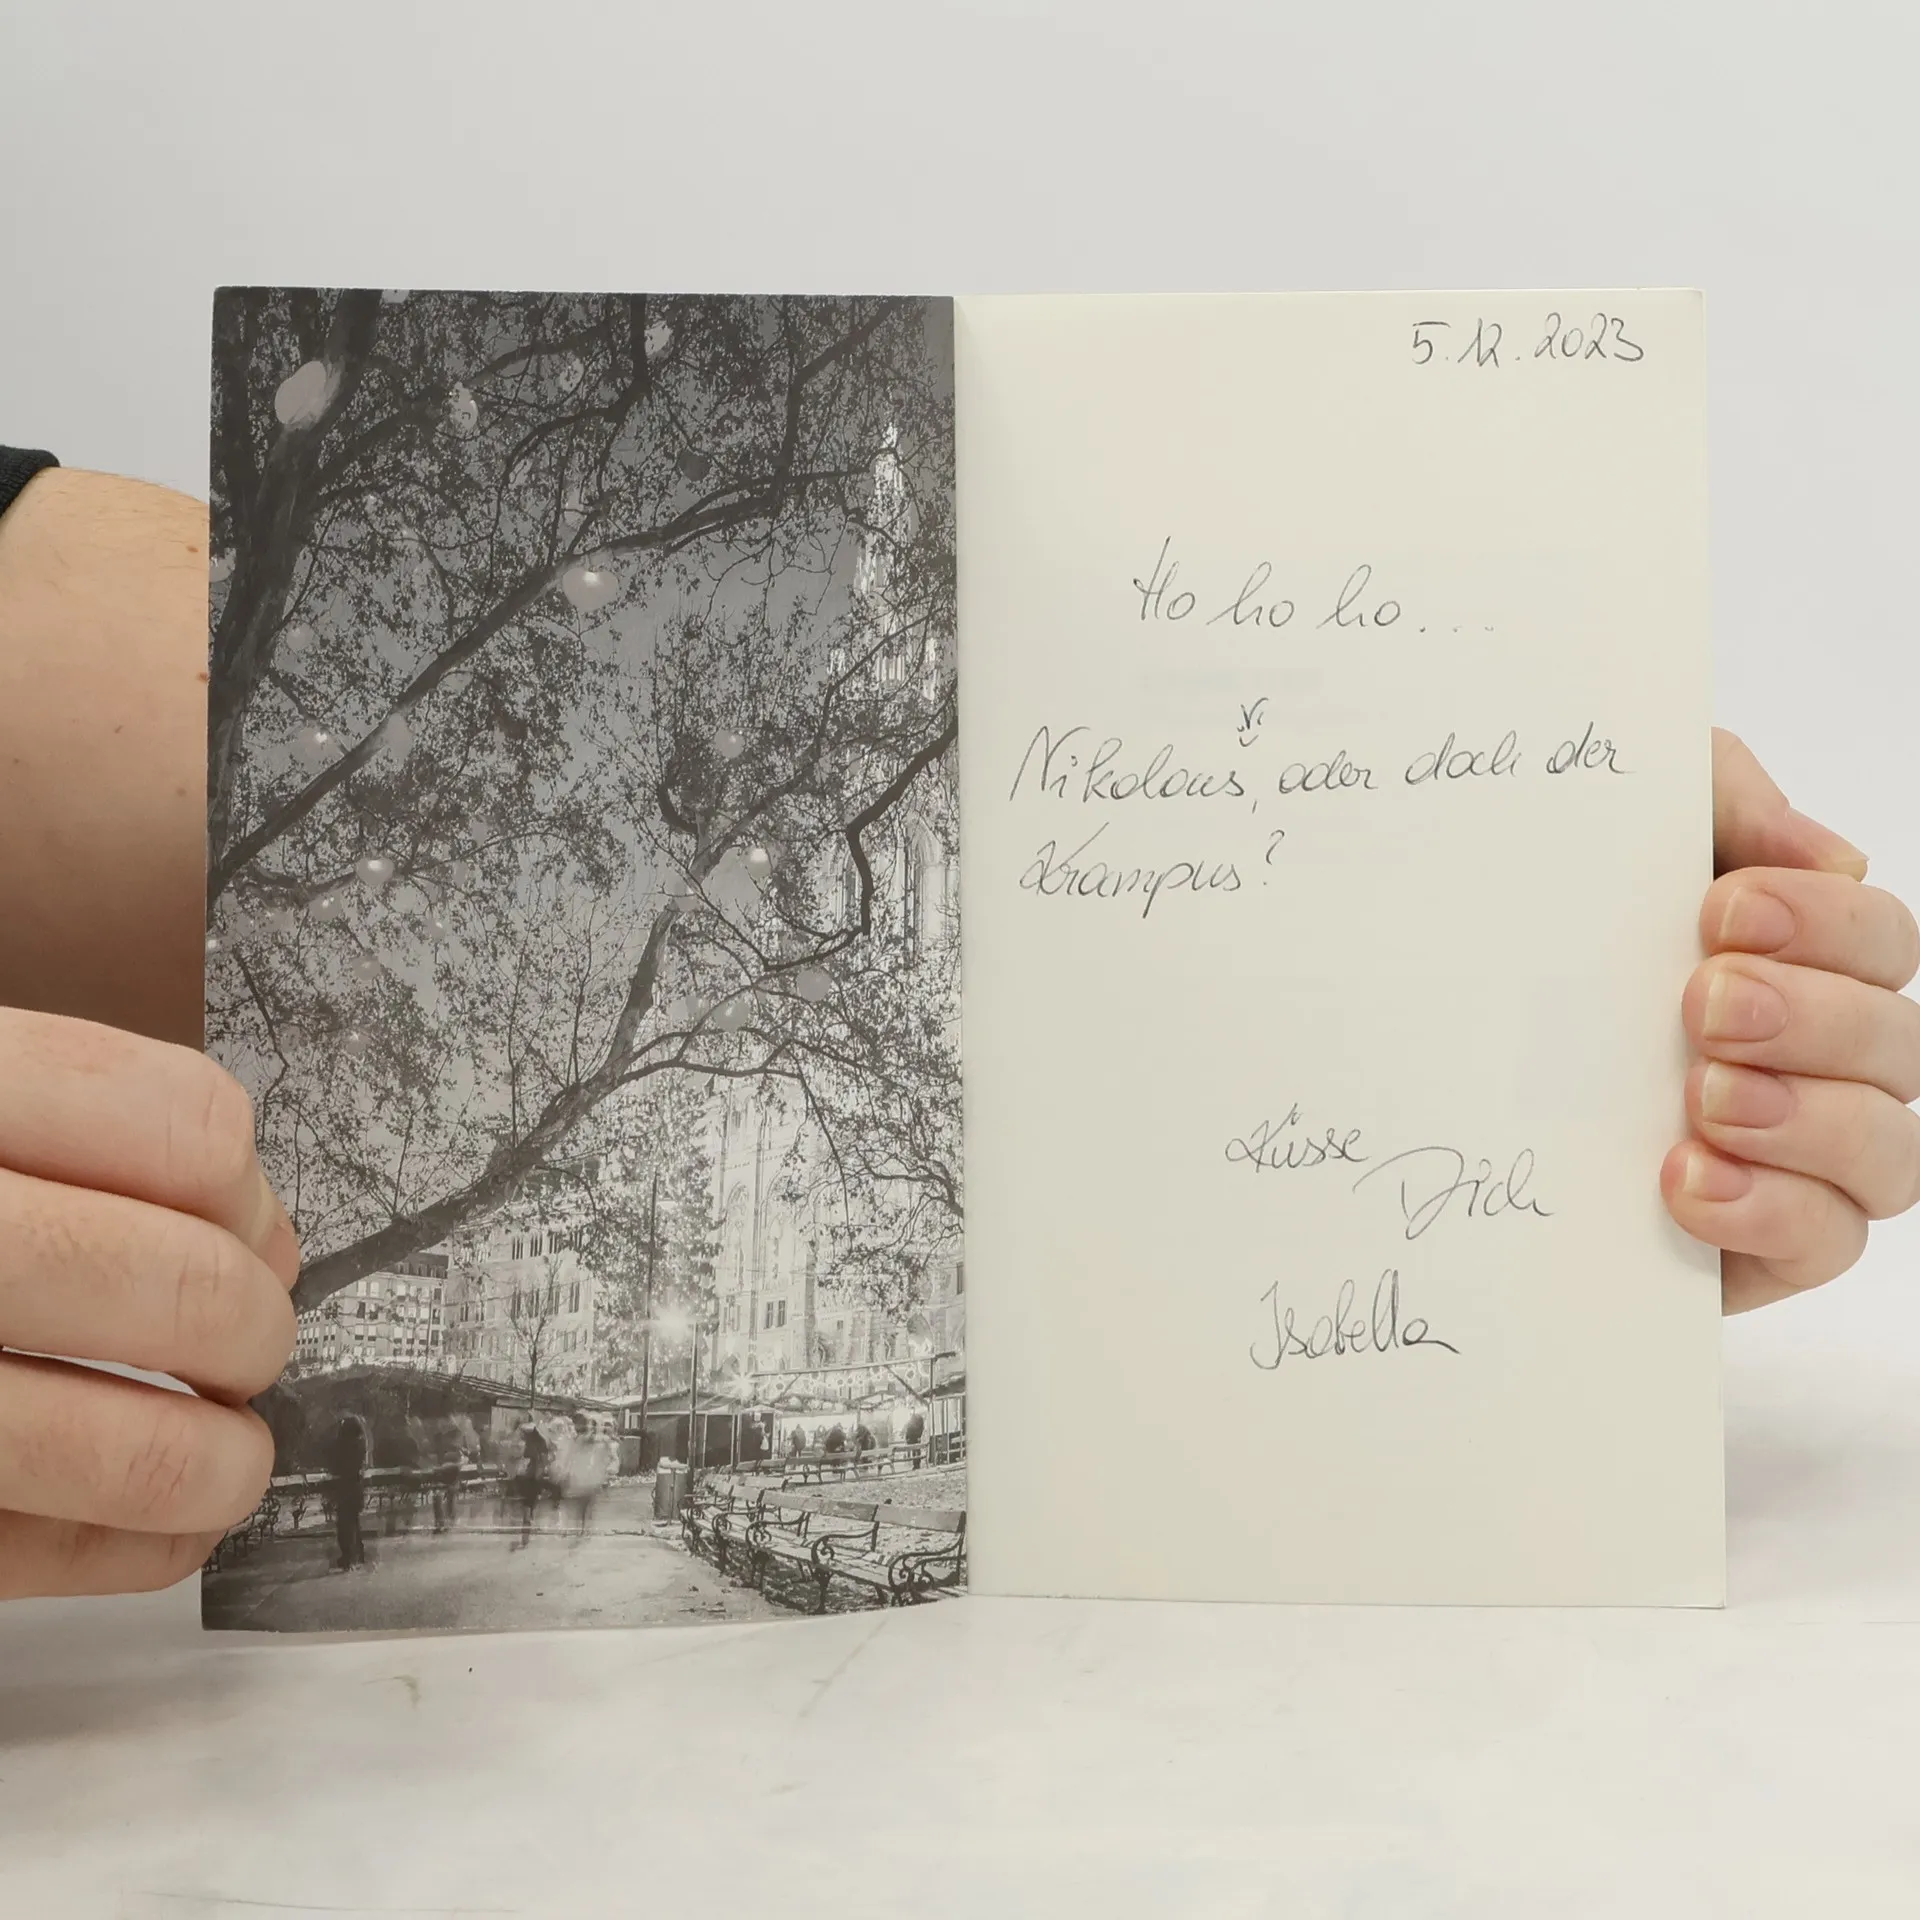 5.12.2023
Ho ho ho...
Nikolaus, oder doch der
Krampus?
Küsse
Dich
Isabella